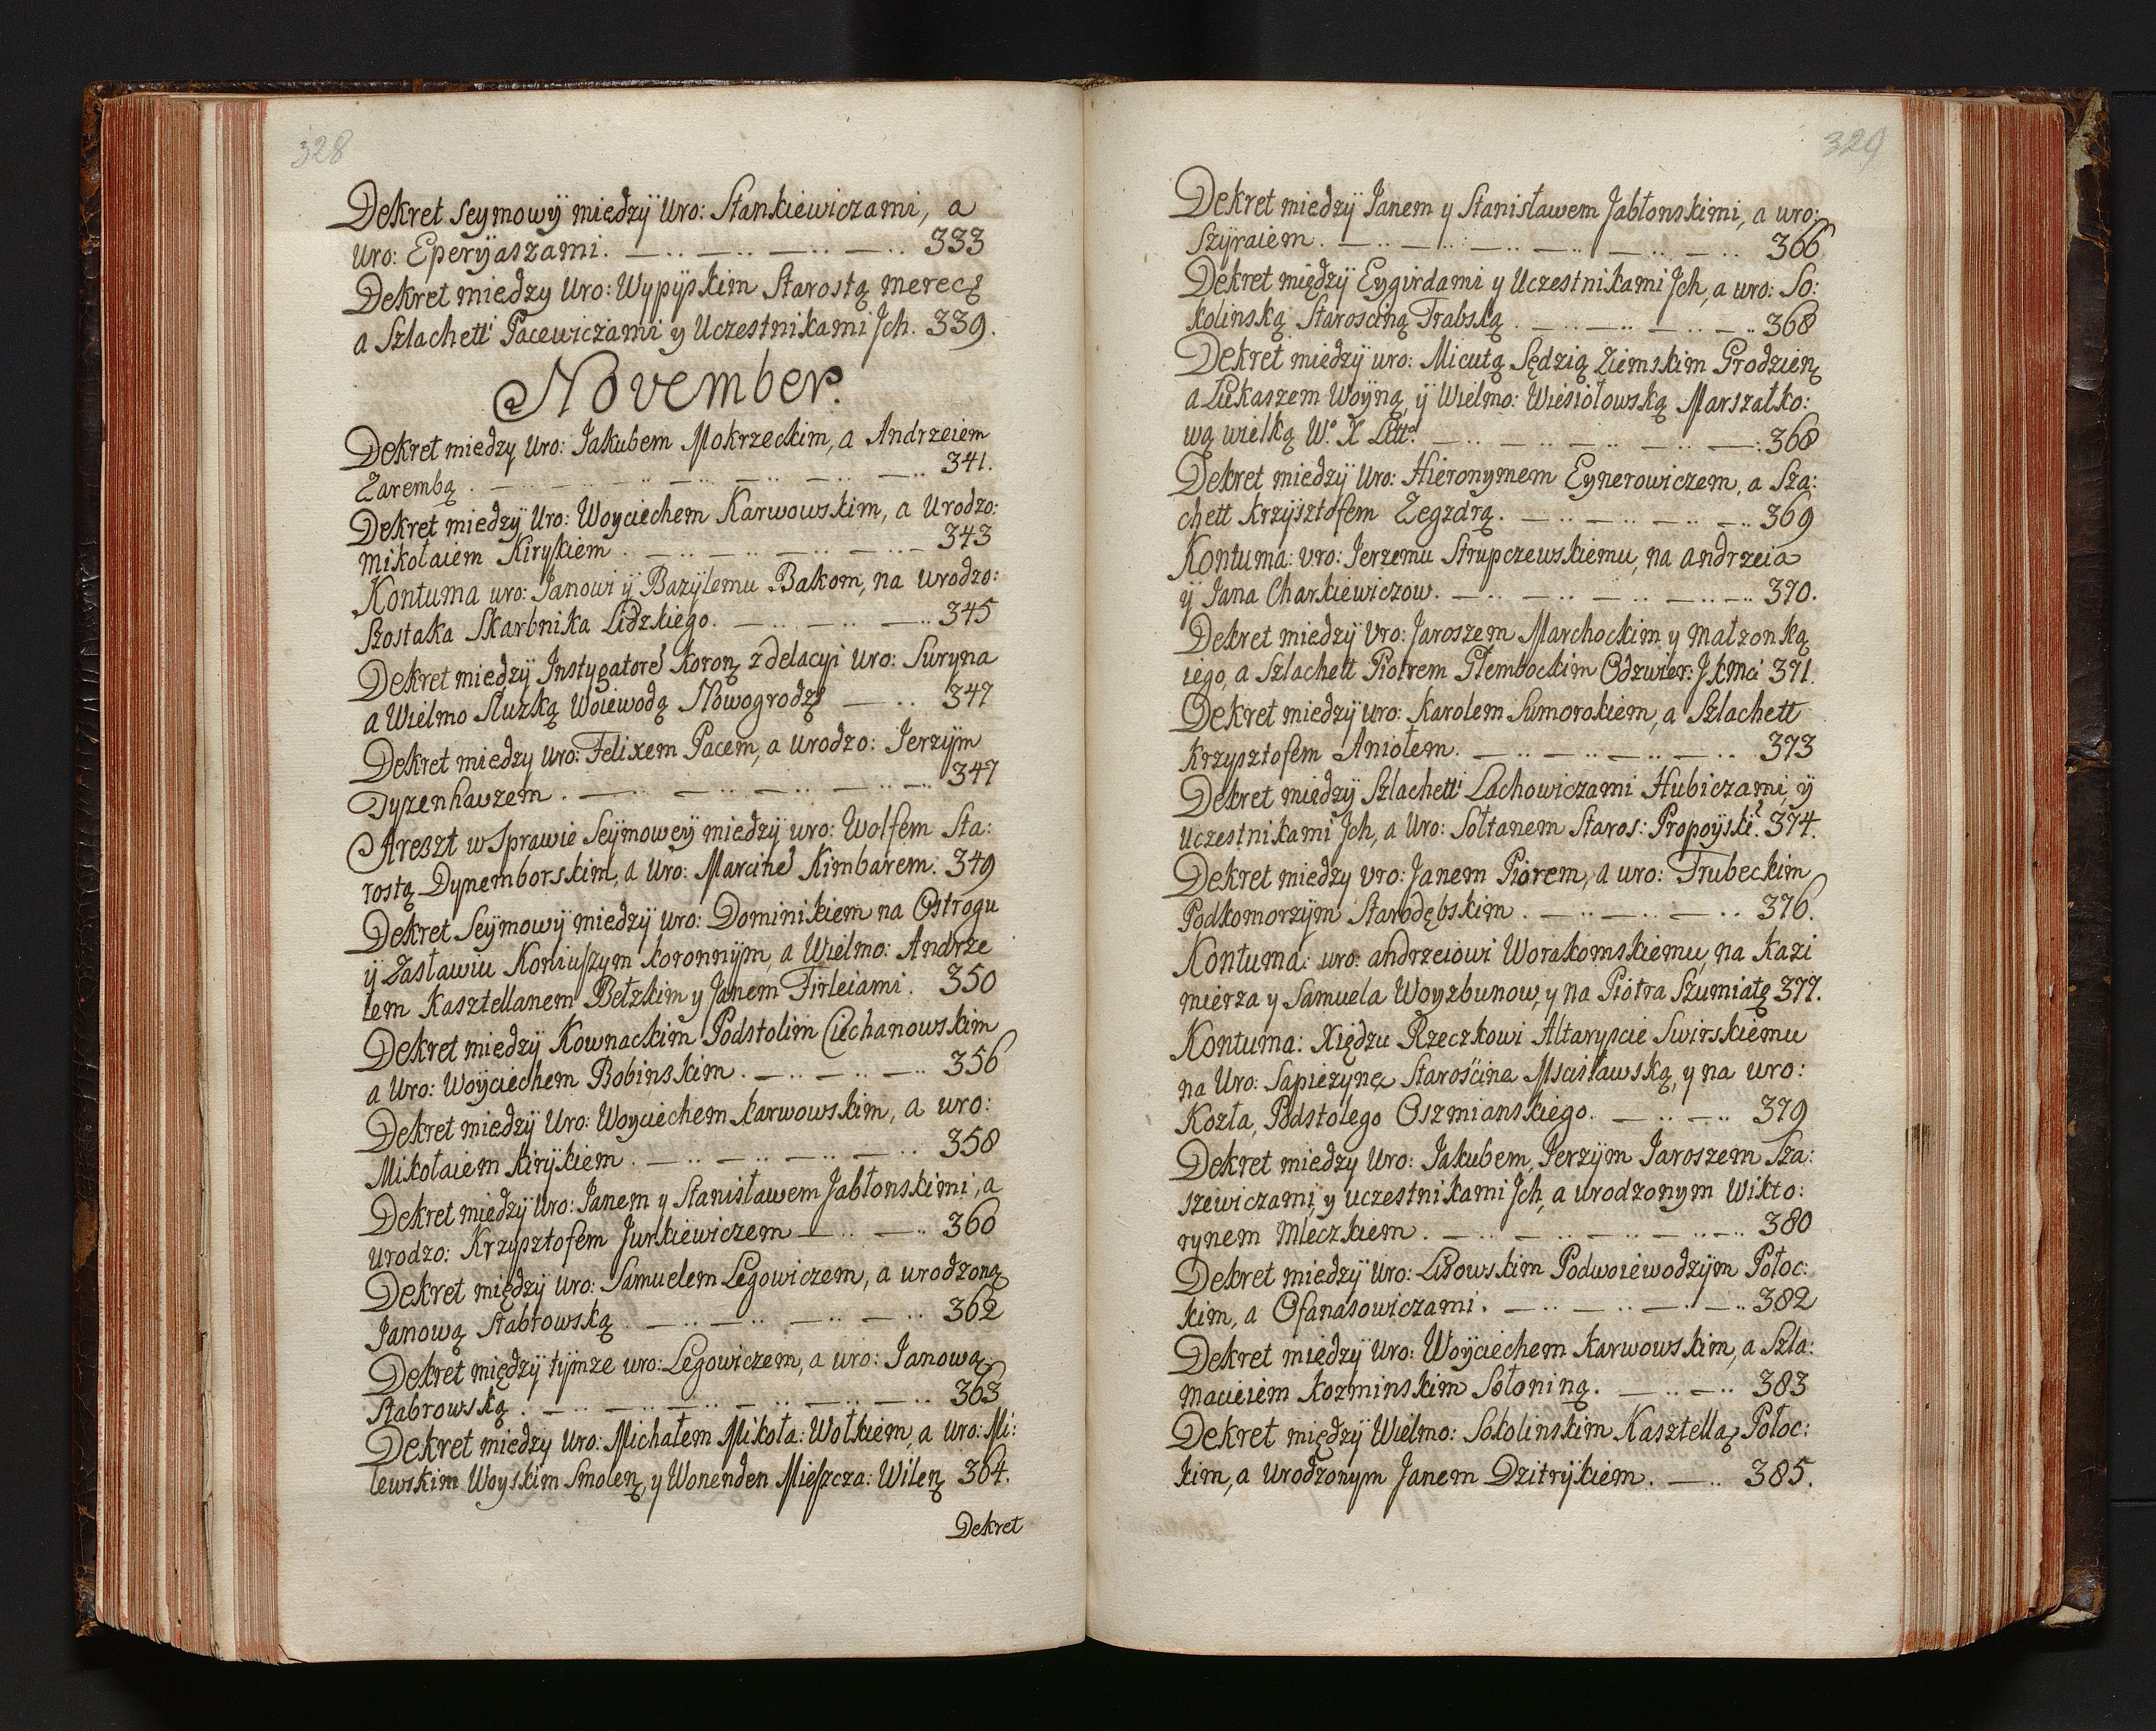 328
Dekret Seymowÿ miedzÿ Uro: Stankiewiczami, a
Uro: Eperÿaszami. — .. — .. — .. — .. 333
Dekret miedzy Uro: Wypÿskim Starostą merecz
a Szlachett Pacewiczami y Uczestnikami Jch. 339.
November.
Dekret miedzy Uro: Jakubem Mokrzeckim, a Andrzeiem
Zarembą . — .. — .. — .. — .. — .. 341.
Dekret miedzÿ Uro: Woyciechem Karwowskim, a Urodzo:
Mikołaiem Kirykiem . — .. — .. — .. — .. — 343
Kontuma uro: Janowi ÿ Bazÿlemu Bakom, na urodzo:
Szostaka Skarbnika Lidzkiego. — .. — .. — .. 345
Dekret miedzÿ Instygatorē Koroną z delacyi Uro: Suryna
a Wielmo Słuzką Woiewodą Nowogrodz — .. 347
Dekret miedzy Uro: Felixem Pacem, a urodzo: Jerzÿm
Tyzenhauzem . — .. — .. — .. — .. — .. 347
Areszt w Sprawie Seÿmoweÿ miedzÿ uro: Wolfem Sta:
rostą Dynemborskim, a Uro: Marcinē Kimbarem. 349
Dekret Seÿmowÿ miedzÿ uro: Dominikiem na Ostrogu
ÿ Zasławiu Koniuszym koronnÿm, a Wielmo: Andrze
iem Kasztellanem Bełzkim y Janem Firleiami . 350
Dekret miedzÿ Kownackim Podstolim Ciechanowskim
a Uro: Woÿciechem Bobinskim . — .. — .. — .. 356
Dekret miedzÿ Uro: Woyciechem Karwowskim, a uro:
Mikołaiem Kirÿkiem . — .. — .. — .. — .. 358
Dekret miedzÿ Uro: Janem y Stanisławem Jabłonskimi, a
urodzo: Krzysztofem Jurkiewiczem — .. — .. 360
Dekret między Uro: Samuelem Legowiczem, a urodzoną
Janową Stabrowską . — .. — .. — .. — .. 362
Dekret międzÿ tÿmze uro: Legowiczem, a uro: Janową
Stabrowską . — .. — .. — .. — .. — .. 363
Dekret miedzy Uro: Michałem Mikoła: Wołkiem, a Uro: Mi:
lewskim Woyskim Smolen, y Wonenden Mieszcza: Wilen 364.
Dekret
329
Dekret miedzÿ Janem y Stanisławem Jabłonskimi, a uro:
Szÿraiem . — .. — .. — .. — .. — .. 366
Dekret międzÿ Eygirdami y Uczestnikami Jch, a uro: So:
kolinską Starosciną Trabską . — .. — .. — .. 368
Dekret miedzÿ uro: Micutą Sędzią Ziemskim Grodzien
a Łukaszem Woyną, ÿ Wielmo: Wiesiołowską Marszałko:
wą wielką W.º X Litt.º — .. — .. — .. — .. 368
Dekret miedzÿ Uro: Hieronymem Eynerowiczem, a Sza:
chett Krzÿsztofem Zegzdrą. — .. — .. — .. 369
Kontuma: vro: Jerzemu Strupczewskiemu, na andrzeia
ÿ Jana Charkiewiczow. — .. — .. — .. — .. 370.
Dekret miedzÿ Vro: Jaroszem Marchockim y małzonką
iego, a Szlachett Piotrem Głembockim Odzwier: Jkmci 371.
Dekret miedzÿ uro: Karolem Sumorokiem, a Szlachett
Krzysztofem Aniołem. — .. — .. — .. — .. 373
Dekret miedzÿ Szlachett Lachowiczami Hubiczami, ÿ
Uczestnikami Jch, a Uro: Sołtanem Staros: Propoÿski. 374.
Dekret miedzy vro: Janem Piorem, a uro: Trubeckim
Podkomorzÿm Starodębskim . — .. — .. — .. 376.
Kontuma: uro: andrzeiowi Worakomskiemu, na Kazi
mierza y Samuela Woyzbunow, y na Piotra Szumiatę 377.
Kontuma: Xiędzu Rzeczkowi Altaryscie Swirskiemu
na Uro: Sapiezynę Starościne Mscisławską, y na uro:
Kozła, Podstolego Oszmianskiego. — .. — .. 379
Dekret miedzy Uro: Jakubem, Jerzÿm Jaroszem Sza:
szewiczami, y uczestnikami Jch, a urodzonym Wikto:
rynem Mleczkiem . — .. — .. — .. — .. 380
Dekret miedzÿ Uro: Lisowskim Podwoiewodzÿm Połoc:
kim, a Ofanasowiczami . — .. — .. — .. 382
Dekret miedzÿ Uro: Woÿciechem Karwowskim, a Szla:
Macieiem Kozminskim Sołoniną. — .. — .. 383
Dekret międzÿ Wielmo: Sokolinskim Kasztella, Połoc:
kim, a Urodzonym Janem Dzitrÿkiem. — .. 385.